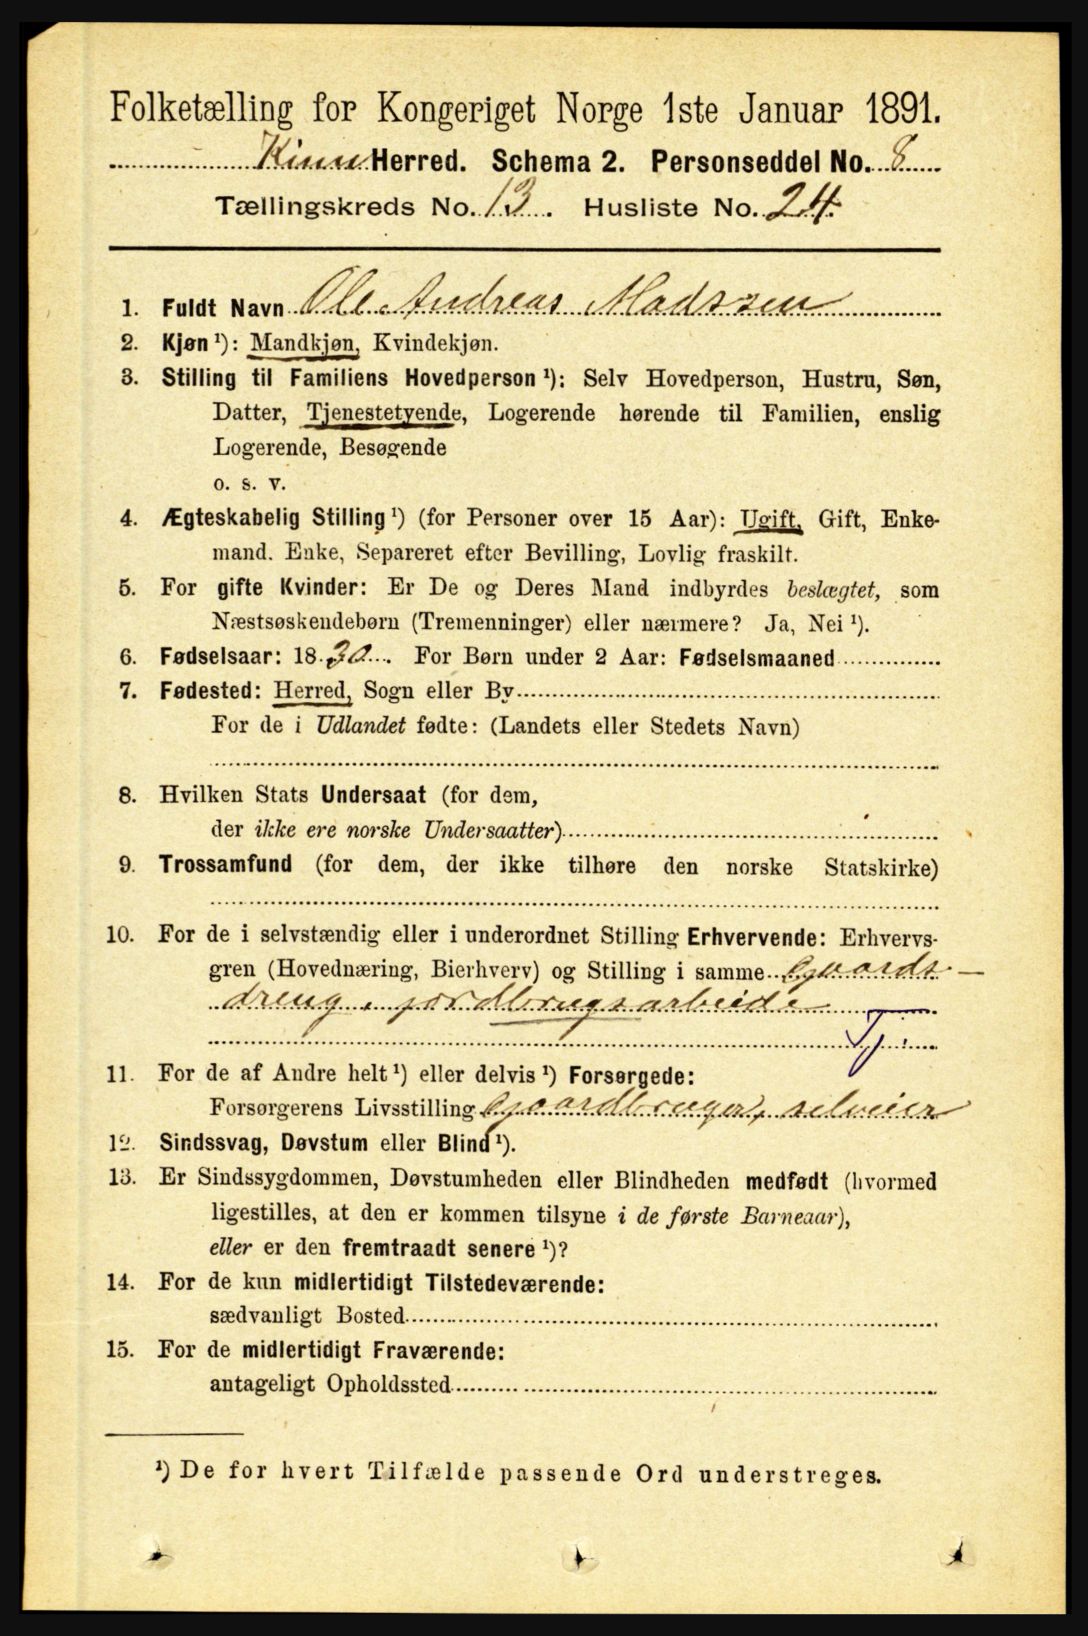 Folketælling for Kongeriget Norge 1ste Januar 1891.
Kinn Herred. Schema 2. Personseddel No. 8
Tællingskreds No. 13. Husliste No. 24.
1. Fuldt Navn Ole Andreas Madssen
2. Kjøn ¹): Mandkjøn, Kvindekjøn.
3. Stilling til Familiens Hovedperson ¹): Selv Hovedperson, Hustru, Søn,
Datter, Tjenestetyende, Logerende hørende til Familien, enslig
Logerende, Besøgende
o. s. v.
4. Ægteskabelig Stilling ¹) (for Personer over 15 Aar): Ugift, Gift, Enke-
mand. Enke, Separeret efter Bevilling, Lovlig fraskilt.
5. For gifte Kvinder: Er De og Deres Mand indbyrdes beslægtet, som
Næstsøskendebørn (Tremenninger) eller nærmere? Ja, Nei ¹).
6. Fødselsaar: 1830. For Børn under 2 Aar: Fødselsmaaned
7. Fødested: Herred, Sogn eller By
For de i Udlandet fødte: (Landets eller Stedets Navn)
8. Hvilken Stats Undersaat (for dem,
der ikke ere norske Undersaatter)
9. Trossamfund (for dem, der ikke tilhøre den norske Statskirke)
10. For de i selvstændig eller i underordnet Stilling Erhvervende: Erhvervs-
gren (Hovednæring, Bierhverv) og Stilling i samme Gaards-
dreng, jordbrugsarbeide
Tj.
11. For de af Andre helt ¹) eller delvis ¹) Forsørgede:
Forsørgerens Livsstilling Gaardbruger, selveier
12. Sindssvag, Døvstum eller Blind ¹).
13. Er Sindssygdommen, Døvstumheden eller Blindheden medfødt (hvormed
ligestilles, at den er kommen tilsyne i de første Barneaar),
eller er den fremtraadt senere ¹)?
14. For de kun midlertidigt Tilstedeværende:
sædvanligt Bosted
15. For de midlertidigt Fraværende:
antageligt Opholdssted
¹) De for hvert Tilfælde passende Ord understreges.